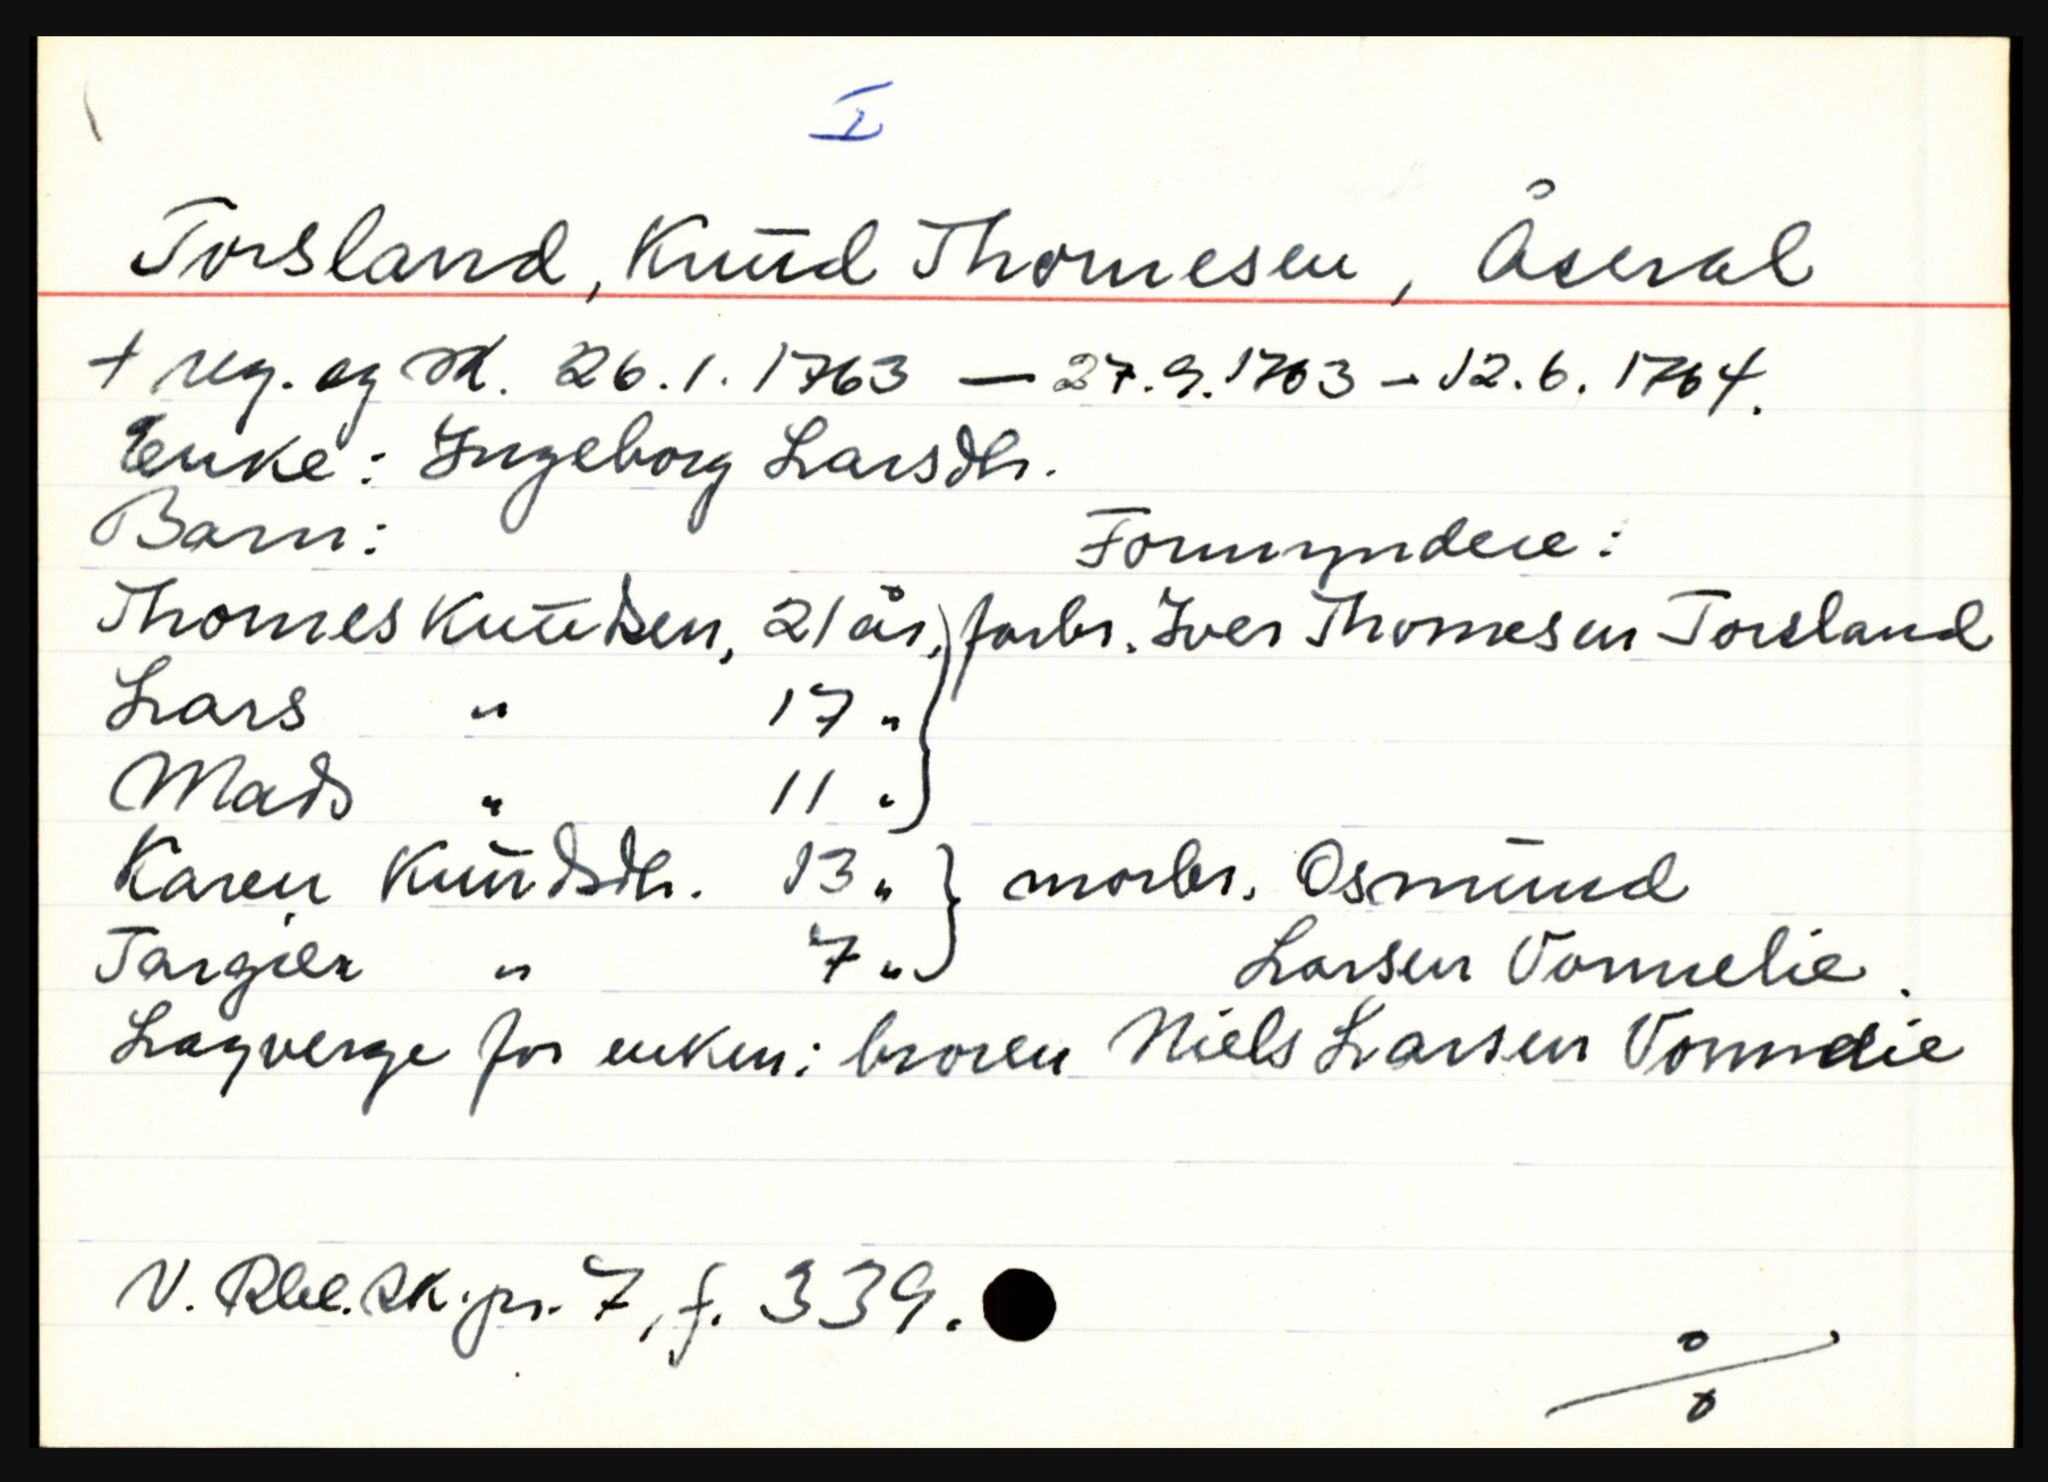 I
Torsland, Knūd Thomesen, Åseral
+ reg. og sk. 26.1.1763 — 27.9.1763 – 12.6.1764.
Enke: Ingeborg Larsdtr.
Barn: Formyndere:
Thomes Knūdsen, 21 år, } farbr. Iver Thomesen Torsland
Lars " 17 "
Mads " 11 "
Karen Knūdsdtr. 13 " } morbr. Osmūnd
Targier " 7 " Larsen Vonnelie.
Lagverge for enken: broren Niels Larsen Vonnelie
V. Rbl. Sk. pr. 7, f. 339.